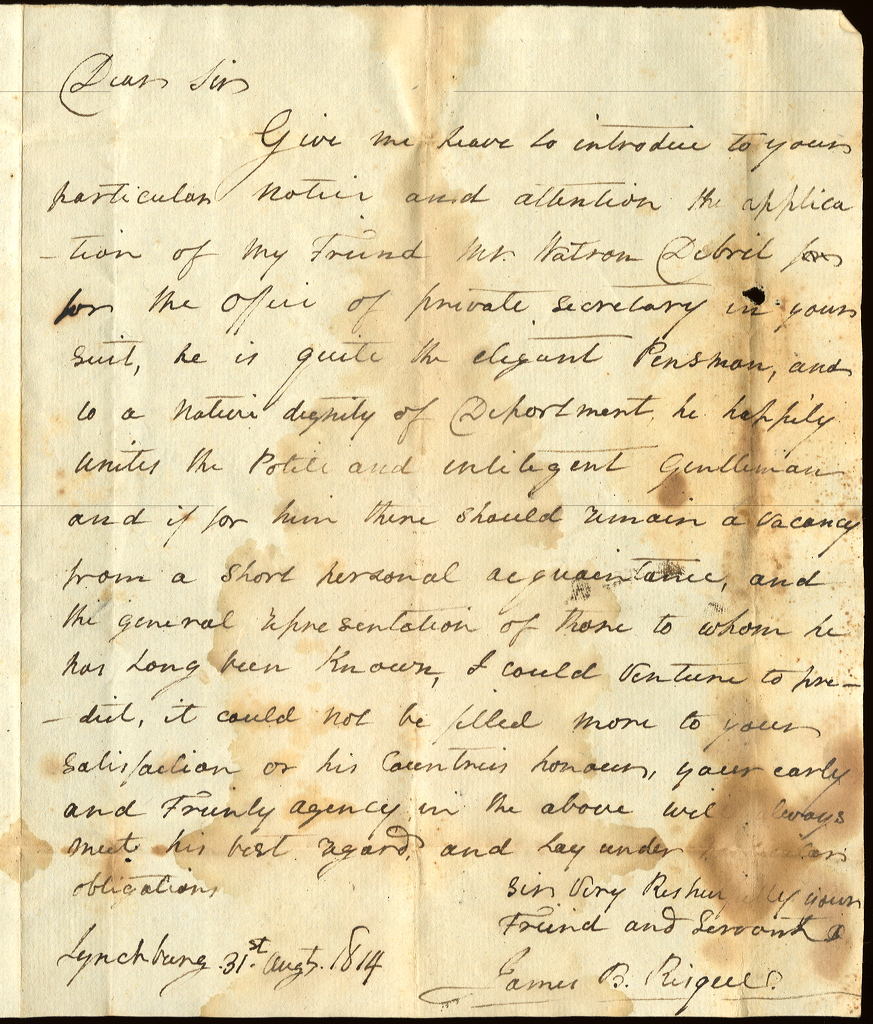 Dear Sir
Give me leave to introduce to your
particular Notice and attention the applica
-tion of my Friend Mr. Watson Debril
for the Office of private secretary in your
suit, he is quite the elegant Pensman, and
to a Native dignity of Deportment, he happily
unites the Polite and intilegent Gentleman
and if for him there should remain a vacancy
from a short personal acquaintance, and
the general representation of those to whom he
has long been Known, I could Venture to pre-
-dict, it could not be filled more to your
Satisfaction or his Countries honour, your early
and Frienly agency in the above will always
meet his best regard, and Lay under
obligations
Sir Very Respectfully your
Friend and Servant
Lynchburg 31st. Augt. 1814
James B. Risque